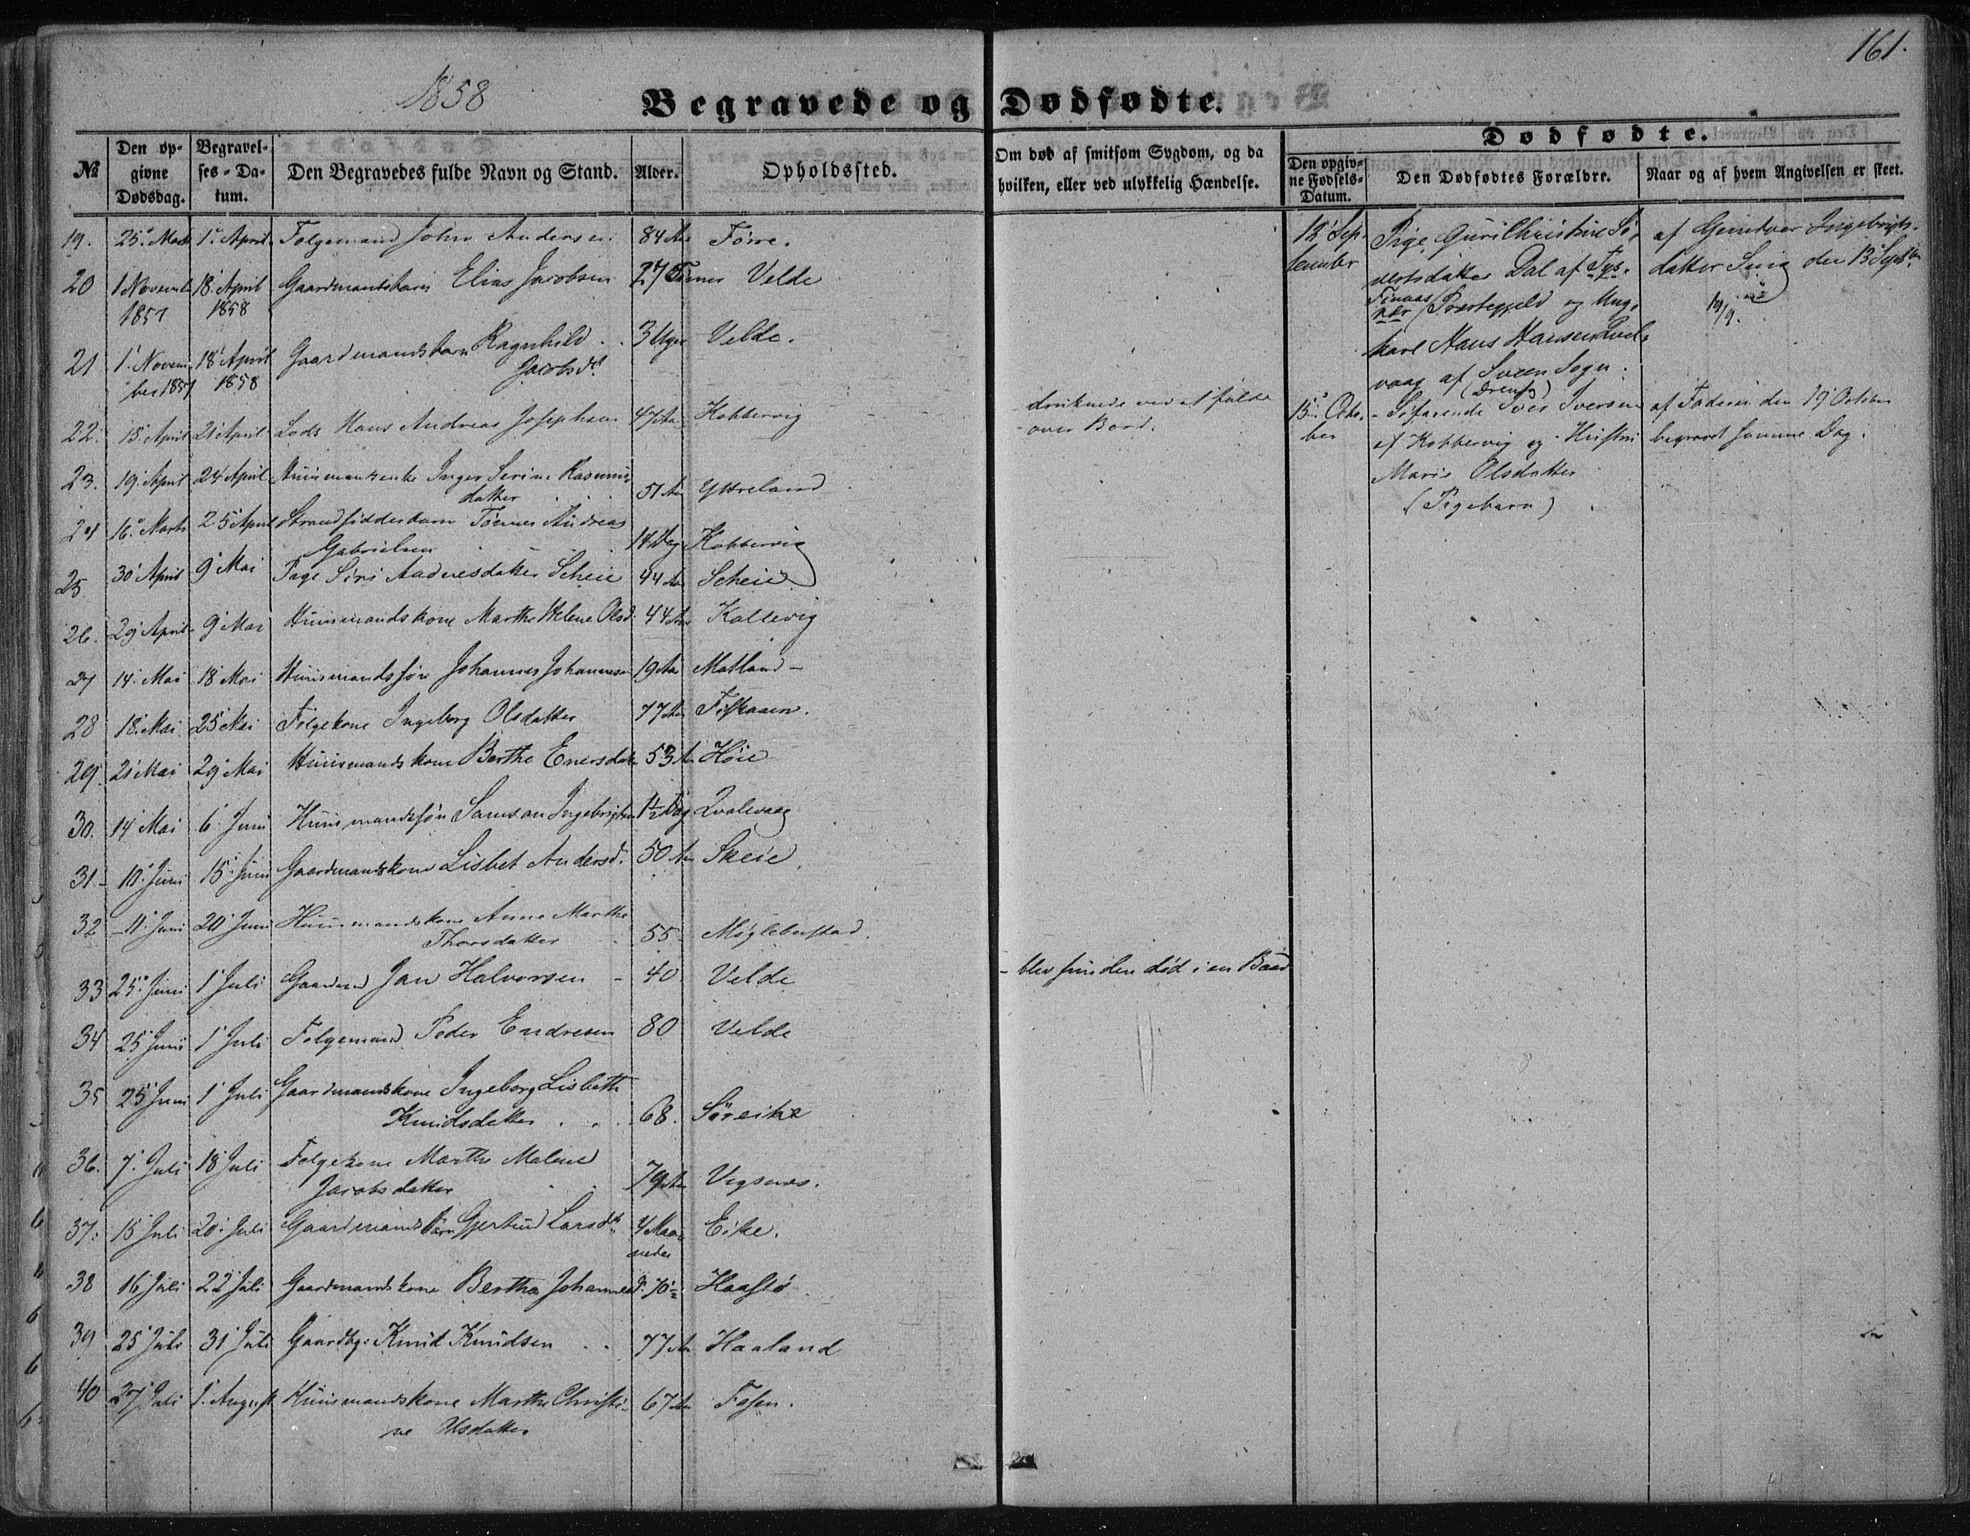 161.
1858
Begravede og Dødfødte.
Dødfødte.
№
Den opgivne Dødsdag.
Begravelses-Datum.
Den Begravedes fulde Navn og Stand.
Alder.
Opholdssted.
Om død af smitsom Sygdom, og da hvilken, eller ved ulykkelig Hændelse.
Den opgivne Fødsels-Datum.
Den Dødfødtes Forældre.
Naar og af hvem Angivelsen er skeet.
19. 25 Marts 1 April Folgemand John Andersen 84 Aar Førre.
20 1 Novemb 1857 18 April 1858 Gaardmandsbarn Elias Jacobsen 27 Velde
21 1 November 1857 18 April 1858 Gaardmandsbarn Ragnhild Jacobsdt 3 Uger Velde.
22. 15 April 21 April Lods Hans Andreas Josephsen 47 Aar Kobbervig druknede ved at falde over Bord.
23. 19 April 24 April Huusmandsenke Inger Serine Rasmusdatter 51 Aar Yttreland
24 16 Marts 25 April Strandsidderbarn Tønnes Andreas Gabrielsen 14 Dag Kobbervig
25 30 April 9 Mai Pige Siri Aadnesdatter Scheie 44 Aar Scheie
26. 29 April 9 Mai Huusmandskone Marthe Helene Olsd. 44 Aar Kallevig
27 14 Mai 18 Mai Huusmandssøn Johannes Johannesen 19 Aar Matland
28 18 Mai 25 Mai Folgekone Ingeborg Olsdatter 77 Aar Fiskaaen.
29. 21 Mai 29 Mai Huusmandskone Berthe Enersdatt 53 A Høie
30. 14 Mai 6 Juni Huusmandssøn Samson Ingebrigtsen 1½ Dag Qvalevaag
31. 10 Juni 15 Juni Gaardmandskone Lisbet Andersd. 50 Aar Skeie.
32 11 Juni 20 Juni Huusmandskone Anne Marthe Thorsdatter 55 Møglebustad.
33 25 Juni 1 Juli Gaardmd Jan Halvorsen 40 Velde - blev funden død i en Baad
34 25 Juni 1 Juli Folgemand Peder Endresen 80 Velde
35 25 Juni 1 Juli Gaardmandskone Ingeborg Lisbeth Knudsdatter 68. Søreike
36. 7 Juli 18 Juli Folgekone Marthe Malene Jacobsdatter 79 Aar Vigsnes.
37. 15 Juli 20 Juli Gaardmandsbarn Gjertrud Larsdt 4 Maaneder Eike.
38 16 Juli 22 Juli Gaardmandskone Bertha Johannesd. 70½ Haastø
39 25 Juli 31 Juli Gaardbr. Knud Knudsen 77 Aar Haaland
40 27 Juli 1 August Huusmandskone Marthe Christine Olsdatter 67 Aar Fosen.
12 September
Pige Guri Christine Si-
vertsdatter Dal af Tys-
Finnaas
nes Præstegjeld og Ung-
karl Hans Hansen
vaag af Sveen Sogn.
af Gundvor Ingebrigts-
datter den 13 Septbr
19/9.
15 October
(Dreng)
Søfarende Iver Iversen
af Kobbervig og Hustru
Maris Olsdatter
(Pigebarn)
af Faderen den 19 October
begravet samme Dag.